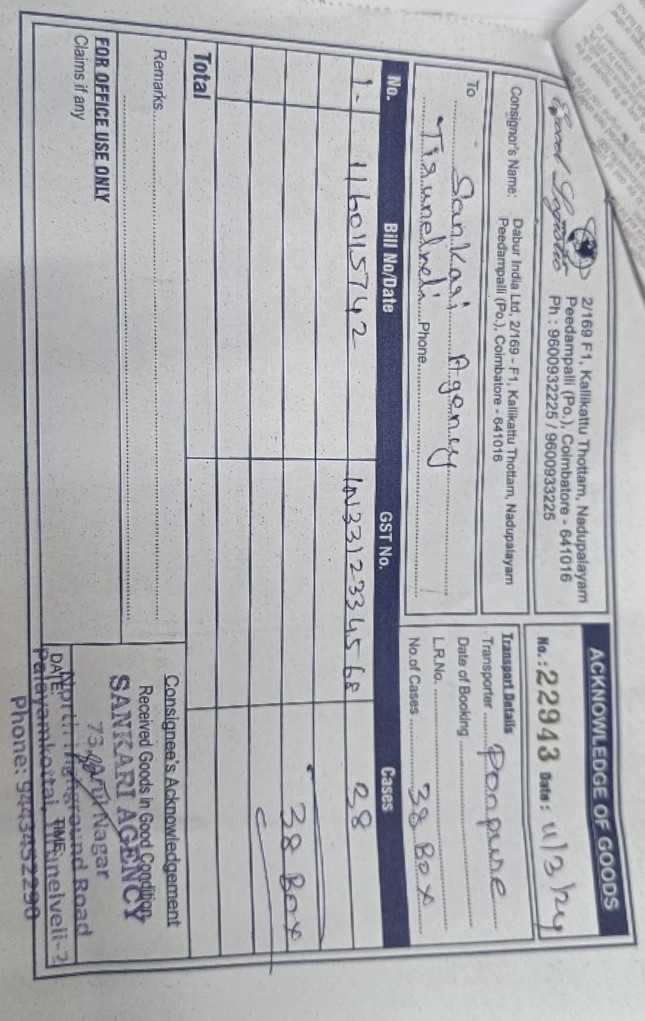 ACKNOWLEDGE OF GOODS
2/169 F1, Kallikattu Thottam, Nadupalayam
Peedampalli (Po.), Coimbatore - 641016
Ph : 9600932225 / 9600933225
No. : 22943 Date : 11/3/24
Consignor's Name: Dabur India Ltd, 2/169 - F1, Kallikattu Thottam, Nadupalayam
Peedampalli (Po.), Coimbatore - 641016
To Sankari Agency
Tirunelveli Phone
Transport Details
Transporter Ponpure
Date of Booking
L.R.No.
No.of Cases 38 Box
No. Bill No/Date GST No. Cases
1. 116015742 IN3312334568 38
38 Box
Total
Remarks
FOR OFFICE USE ONLY
Claims if any
Consignee's Acknowledgement
Received Goods in Good Condition
SANKARI AGENCY
Nagar
North Highground Road
DATE: TIME:
Palayamkottai, Tirunelveli-2
Phone: 9443452290